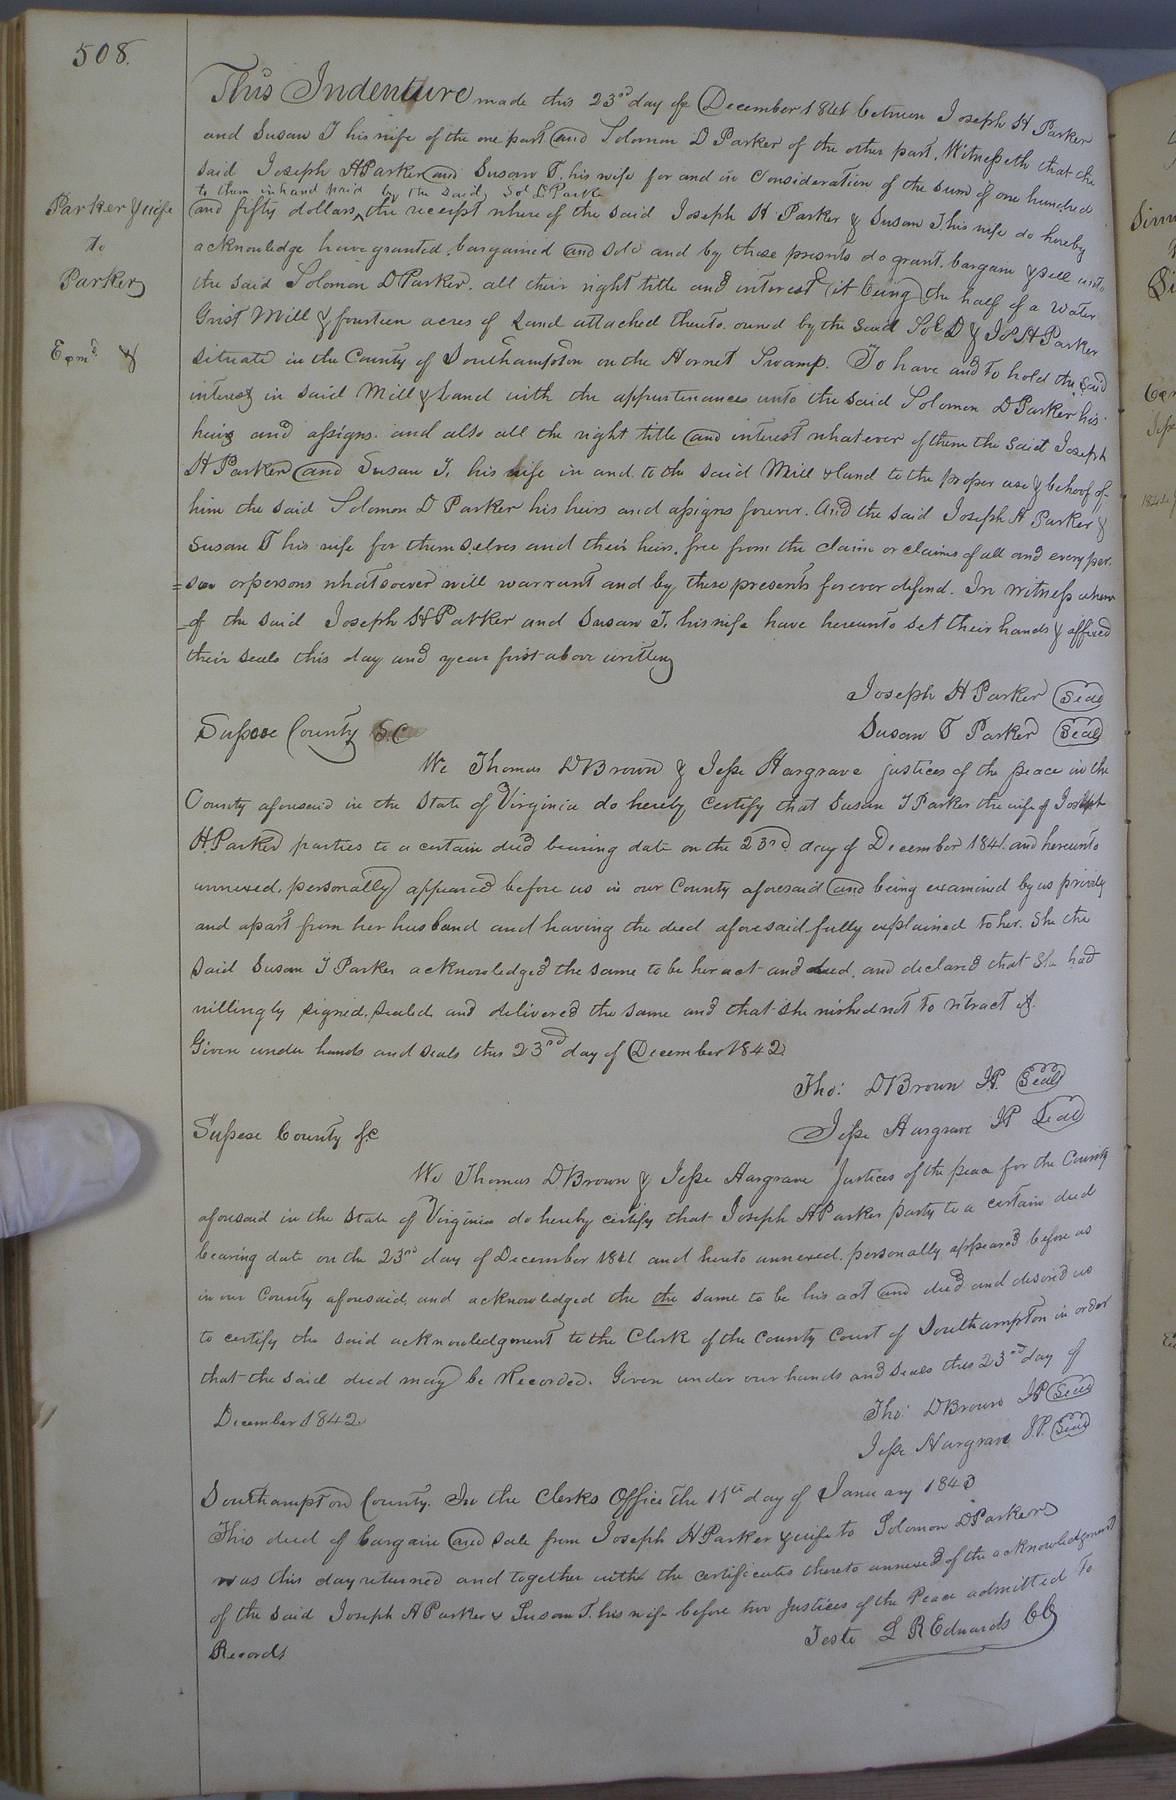 508.
This Indenture made this 23rd day of December 1841 between Joseph H Parker
and Susan T his wife of the one part and Solomon D Parker of the other part. Witnesseth that the
said Joseph H Parker and Susan T. his wife for and in Consideration of the sum of one hundred
to them in hand paid by the said Sol D Parker
Parker & wife
and fifty dollars, the receipt where of the said Joseph H Parker & Susan T his wife do hereby
to
acknowledge have granted, bargained and sold and by these presents do grant, bargain & sell unto
Parker
the said Solomon D Parker. all their right title and interest (it being the half of a Water
Grist Mill & fourteen acres of Land attached thereto. owned by the said Sol D & Jos H Parker
Exmd
situate in the County of Southampton on the Hornet Swamp. To have and to hold the said
interest in said Mill & Land with the appurtenances unto the said Solomon D Parker his
heirs and assigns. and also all the right title and interest whatever of them the said Joseph
H Parker and Susan T. his wife in and to the said Mill & land to the proper use & behoof of
him the said Solomon D Parker his heirs and assigns forever. And the said Joseph H Parker &
Susan T his wife for themselves and their heirs, free from the claim or claims of all and every per
=son or persons whatsoever will warrant and by these presents forever defend. In witness where
=of the said Joseph H Parker and Susan T. his wife have hereunto set their hands & affixed
their seals this day and year first above written
Joseph H Parker Seal
Susan T Parker Seal
Sussex County S.C
We Thomas D Brown & Jesse Hargrave justices of the peace in the
County aforesaid in the State of Virginia do hereby Certify that Susan T Parker the wife of Joseph
H Parker parties to a certain deed bearing date on the 23rd day of December 1841. and hereunto
annexed, personally appeared before us in our County aforesaid and being examined by us privily
and apart from her husband and having the deed aforesaid fully explained to her. She the
said Susan T Parker acknowledged the same to be her act and deed, and declared that she had
willingly signed, sealed and delivered the same and that she wished not to retract it.
Given under hands and seals this 23rd day of December 1842
Tho: D Brown JP. Seal
Jesse Hargrave JP Seal
Sussex County Sc
We Thomas D. Brown & Jesse Hargrave Justices of the peace for the County
aforesaid in the State of Virginia do hereby certify that Joseph H Parker party to a certain deed
bearing date on the 23rd day of December 1841 and hereto annexed. personally appeared before us
in our County aforesaid, and acknowledged the the same to be his act and deed and desired us
to certify the said acknowledgment to the Clerk of the County Court of Southampton in order
that the said deed may be Recorded. Given under our hands and seals this 23rd day of
December 1842
Tho: D Brown JP Seal
Jesse Hargrave J.P. Seal
Southampton County. In the Clerks Office the 11th day of January 1843
This deed of bargain and sale from Joseph H Parker & wife to Solomon D Parker
was this day returned and together with the certificates thereto annexed of the acknowledgment
of the said Joseph H Parker & Susan T. his wife before two Justices of the Peace admitted to
Records
Teste L R Edwards CC